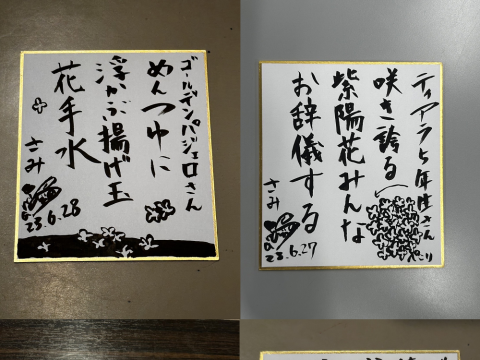 ゴールデンパジェロさん
めんつゆに
浮かぶ揚げ玉
花手水
さみ
23.6.28
ティアラ5年生さん
咲き誇る
紫陽花みんな
お辞儀する
さみ
23.6.27
ペこり